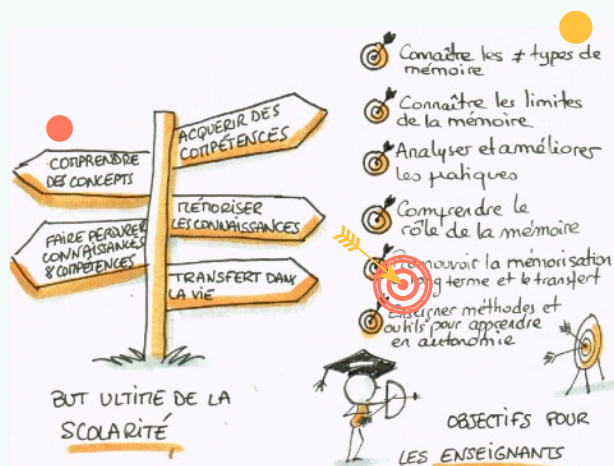 ACQUÉRIR DES
COMPÉTENCES
COMPRENDRE
DES CONCEPTS
MÉMORISER
LES CONNAISSANCES
FAIRE PERDURER
CONNAISSANCES
& COMPÉTENCES
TRANSFERT DANS
LA VIE
BUT ULTIME DE LA
SCOLARITÉ
Connaître les ≠ types de
mémoire
Connaître les limites
de la mémoire
Analyser et améliorer
les pratiques
Comprendre le
rôle de la mémoire
Promouvoir la mémorisation
long terme et le transfert
Enseigner méthodes et
outils pour apprendre
en autonomie
OBJECTIFS POUR
LES ENSEIGNANTS